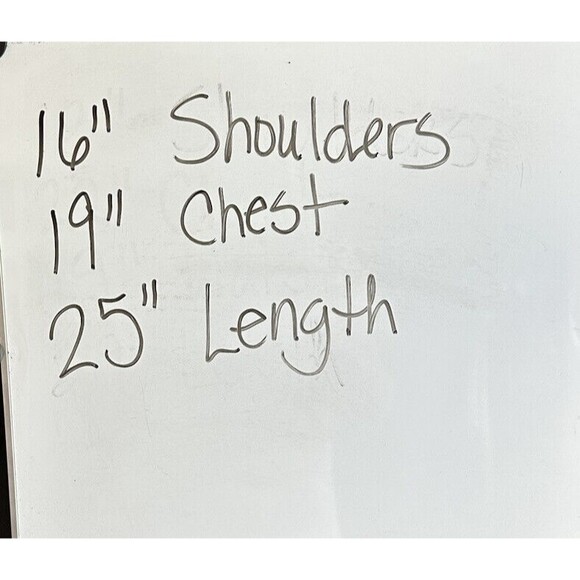 16" Shoulders
19" Chest
25" Length